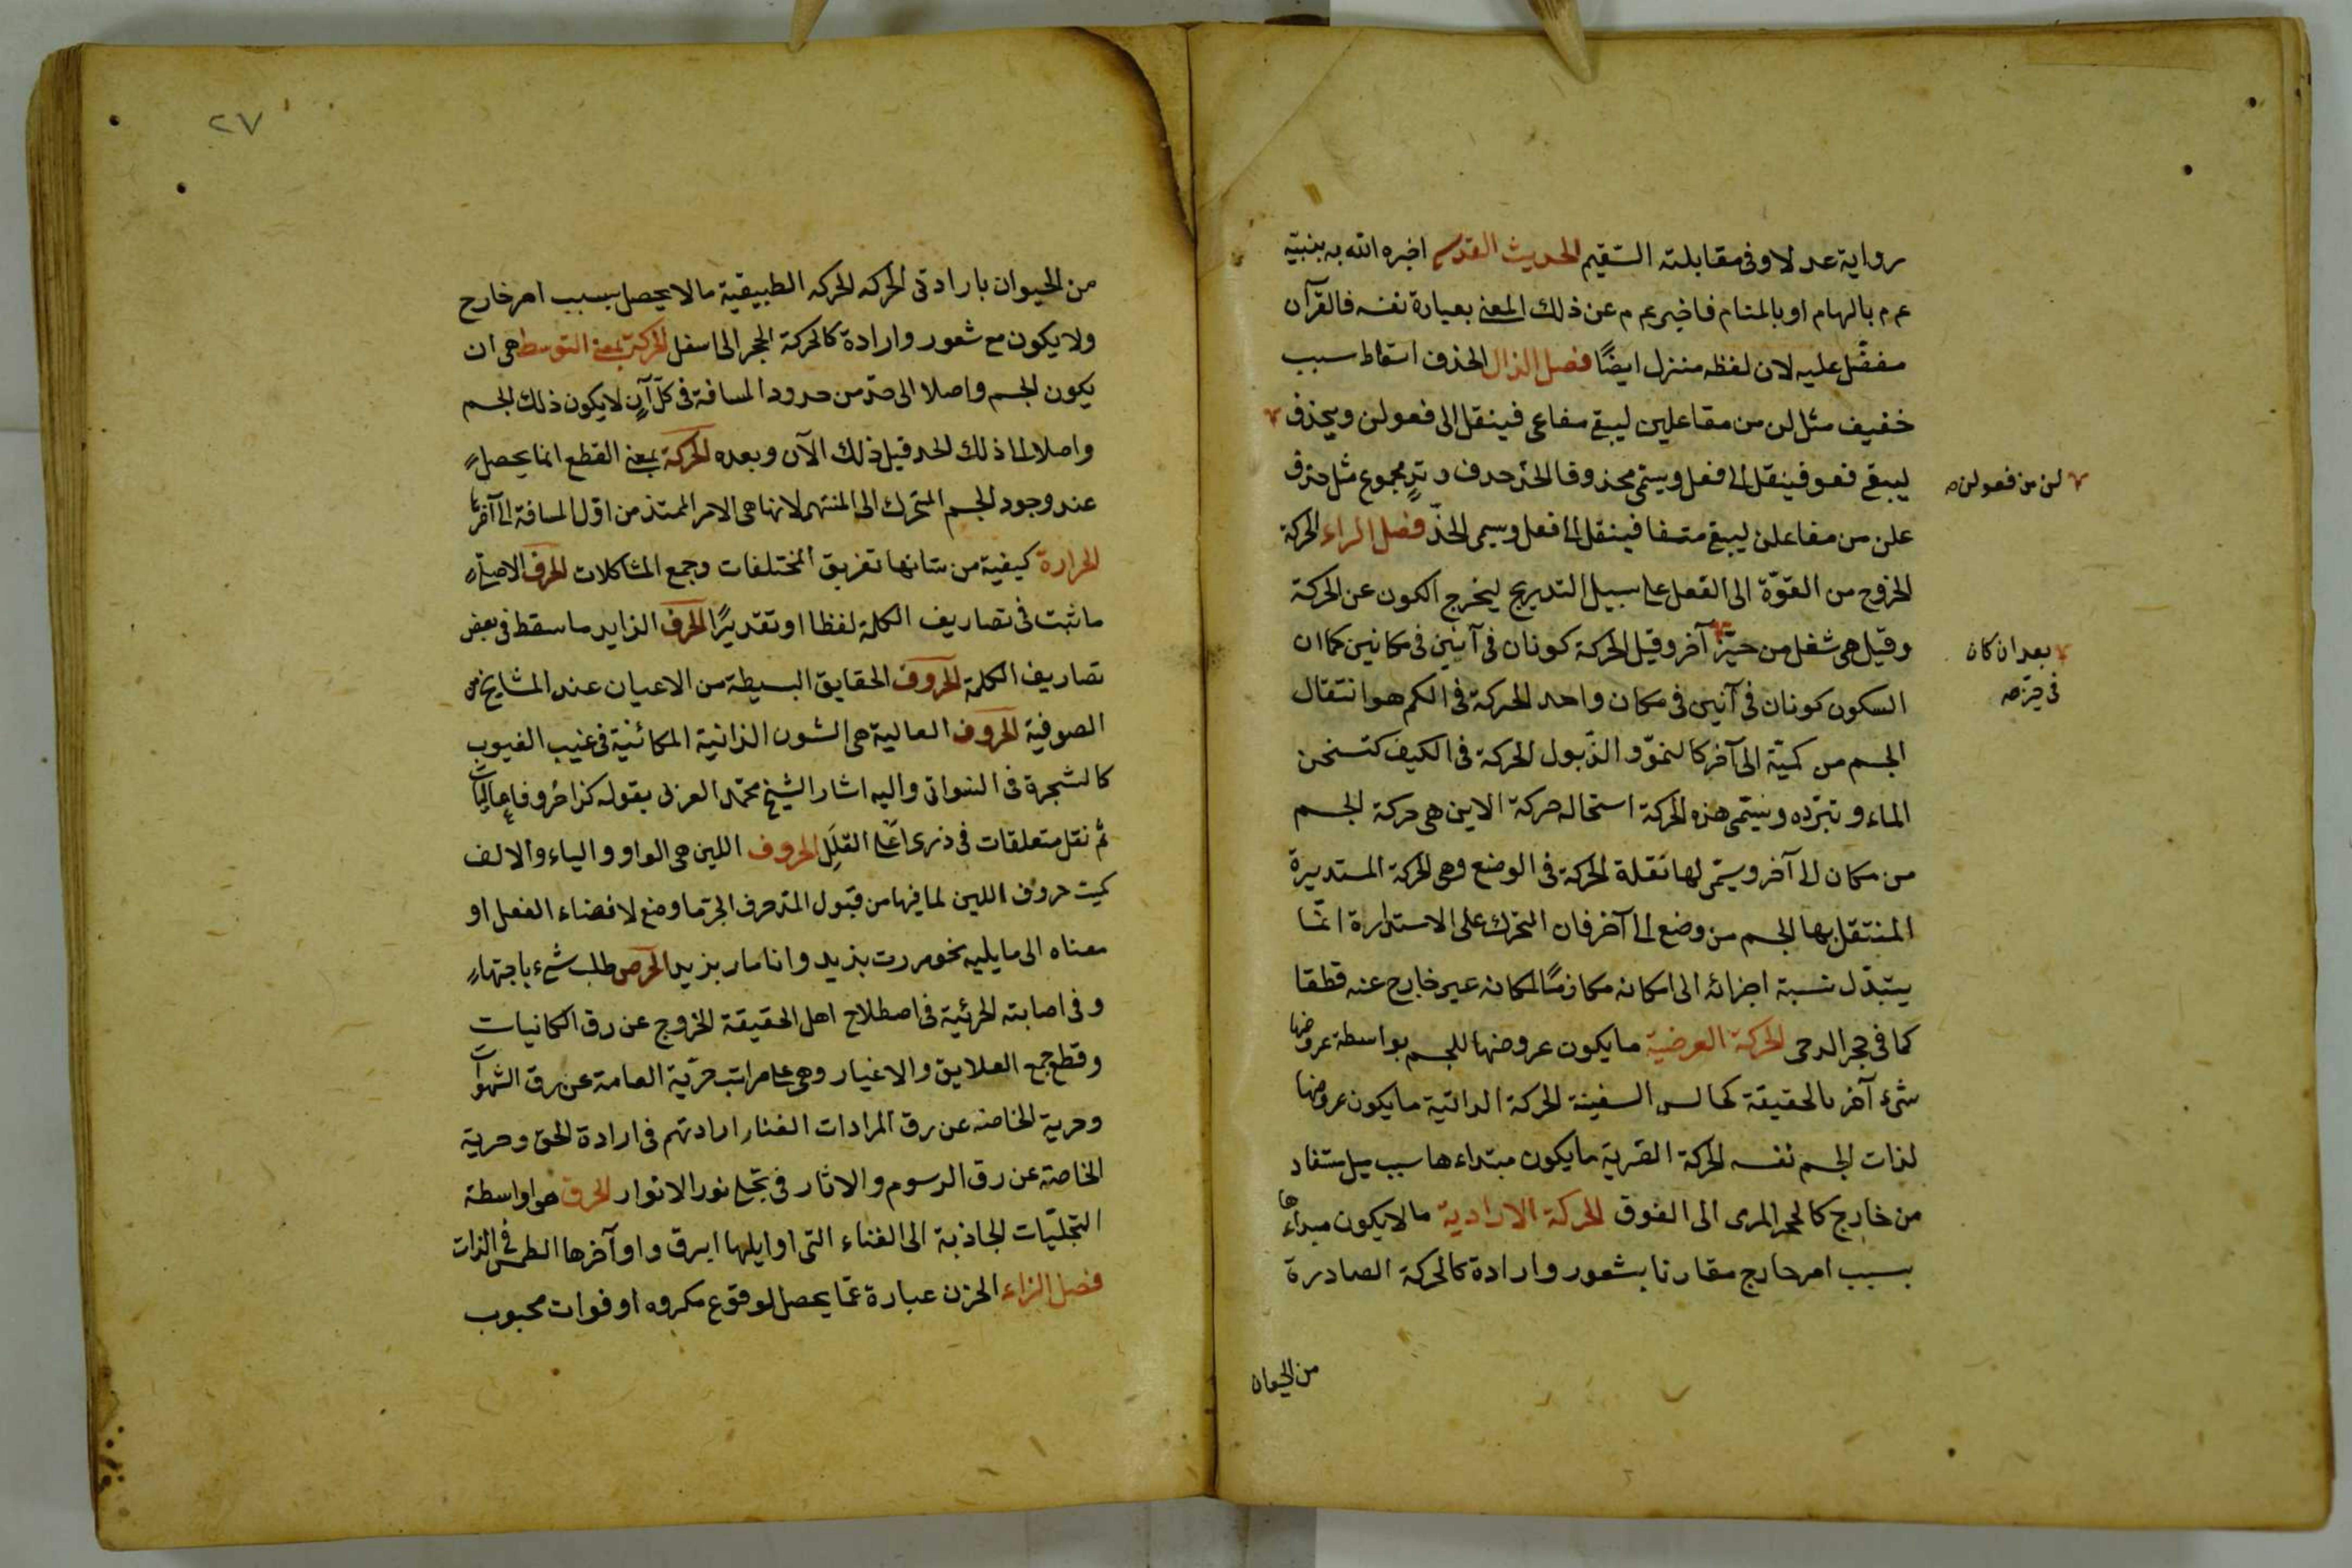 رواية عدلا وفي مقابلته السقيم الحديث القدسي اخبره الله به بنبيه
عم م بالهام او بالمنام فاخبر عم م عن ذلك المعنى بعبارة نفسه فالقرآن
مفضل عليه لان لفظه منزل ايضًا فصل الذال الحذف اسقاط سبب
خفيف مثل لن من مفاعلين ليبقى مفاعى فينقل الى فعولن ويحذف
ليبقى فعو فينقل الى فعل ويسمى محذوفا الحذ حدف وتد مجموع مثل حذف
لن من فعولن صح
علن من مفاعلن ليبقى متفا فينقل الى فعل ويسمى الحذ فصل الراء الحركة
الخروج من القوّة الى الفعل على سبيل التدريج ليخرج الكون عن الحركة
وقيل هى شغل من حيّز آخر وقيل الحركة كونان فى آنين فى مكانين كما ان
بعد ان كان
فى حيّز صح
السكون كونان فى آنين فى مكان واحد الحركة فى الكم هو انتقال
الجسم من كميّة الى آخر كالنموّ والذّبول الحركة فى الكيف كتسخن
الماء وتبرّده ويسمّى هذه الحركة استحاله حركة الاين هى حركة الجسم
من مكان الى آخر ويسمّى لها نقلة الحركة فى الوضع وهى الحركة المستديرة
المنتقل بها الجسم من وضع الى آخر فان التحرك على الاستدارة انّما
يتبدّل نسبة اجزائه الى امكانه مكازمًا لمكانه غير خارج عنه قطقا
كما فى حجر الدحى الحركة العرضية ما يكون عروضها للجسم بواسطة عروضها
شىء آخر بالحقيقة كجالس السفينة الحركة الذاتية ما يكون عروضها
لذات الجسم نفسه الحركة القسرية ما يكون مبتداءها سبب ميل ستفاد
من خارج كالحجر المرى الى الفوق الحركة الارادية ما لا يكون مبداءها
بسبب امر خارج مقارنا بشعور وارادة كالحركة الصادرة
من الحيوان
٢٧
من الحيوان بارادتى الحركه الحركه الطبيقية ما لا يحصل بسبب امر خارج
ولا يكون مع شعور وارادة كالحركة الحجر الى اسفل الحركة بمعنى التوسط هى ان
يكون الجسم واصلا الى حدّ من حدود المسافة فى كلّ آنٍ لا يكون ذلك الجسم
واصلا الى ذلك الحد قبل ذلك الآن وبعده الحركة بمعنى القطع انما يحصل
عند وجود الجسم المتحرك الى المنتهى لانها هى الامر الممتد من اوّل المسافة الى آخرها
الحرارة كيفية من شانها تفريق المختلفات وجمع المشاكلات الحرف الاصلى
ما ثبت فى تصاريف الكلمة لفظا او تقديرًا الحرف الزايد ما سقط فى بعض
تصاريف الكلمة الحروف الحقايق البسيطة من الاعيان عند المشايخ من
الصوفية الحروف العالية هى الشون الذاتية المكائنية فى غيب الغيوب
كالشجرة فى النواتى واليه اشار الشيخ محمّد العربى بقوله كنا حروفا عاليات
ثم نقل متعلقات فى ذرى اعلى القلل الحروف اللين هى الواو والياء والالف
كميت حروف اللين لما فيها من قبول المدّ حرف الجرّ ما وضع لافضاء الفعل او
معناه الى ما يليه نحو مررت بزيد وانا مار بزيد الحرص طلب شىء باجتهاد
وفى اصابته الحرئية فى اصطلاح اهل الحقيقة الخروج عن رق الكانيات
وقطع جمع العلايق والاغيار وهى على مراتب حرّية العامة عن رق الشهوات
وحرية الخاصه عن رق المرادات الفناء ارادتهم فى ارادة الحق وحرية
الخاصة عن رق الرسوم والاثار فى تجلى نور الانوار الحرق هو اواسطة
التجليّات الجاذبة الى الفناء التى اوايلها ابرق واوآخرها الطمس فى الذات
فصل الزاء الحزن عبارة عمّا يحصل لوقوع مكروه او فوات محبوب